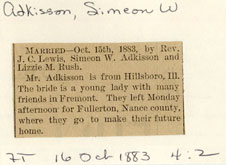 Adkisson, Simeon W
MARRIED—Oct. 15th, 1883, by Rev.
J. C. Lewis, Simeon W. Adkisson and
Lizzie M. Rush.
Mr. Adkisson is from Hillsboro, Ill.
The bride is a young lady with many
friends in Fremont. They left Monday
afternoon for Fullerton, Nance county,
where they go to make their future
home.
FT 16 Oct 1883 4:2